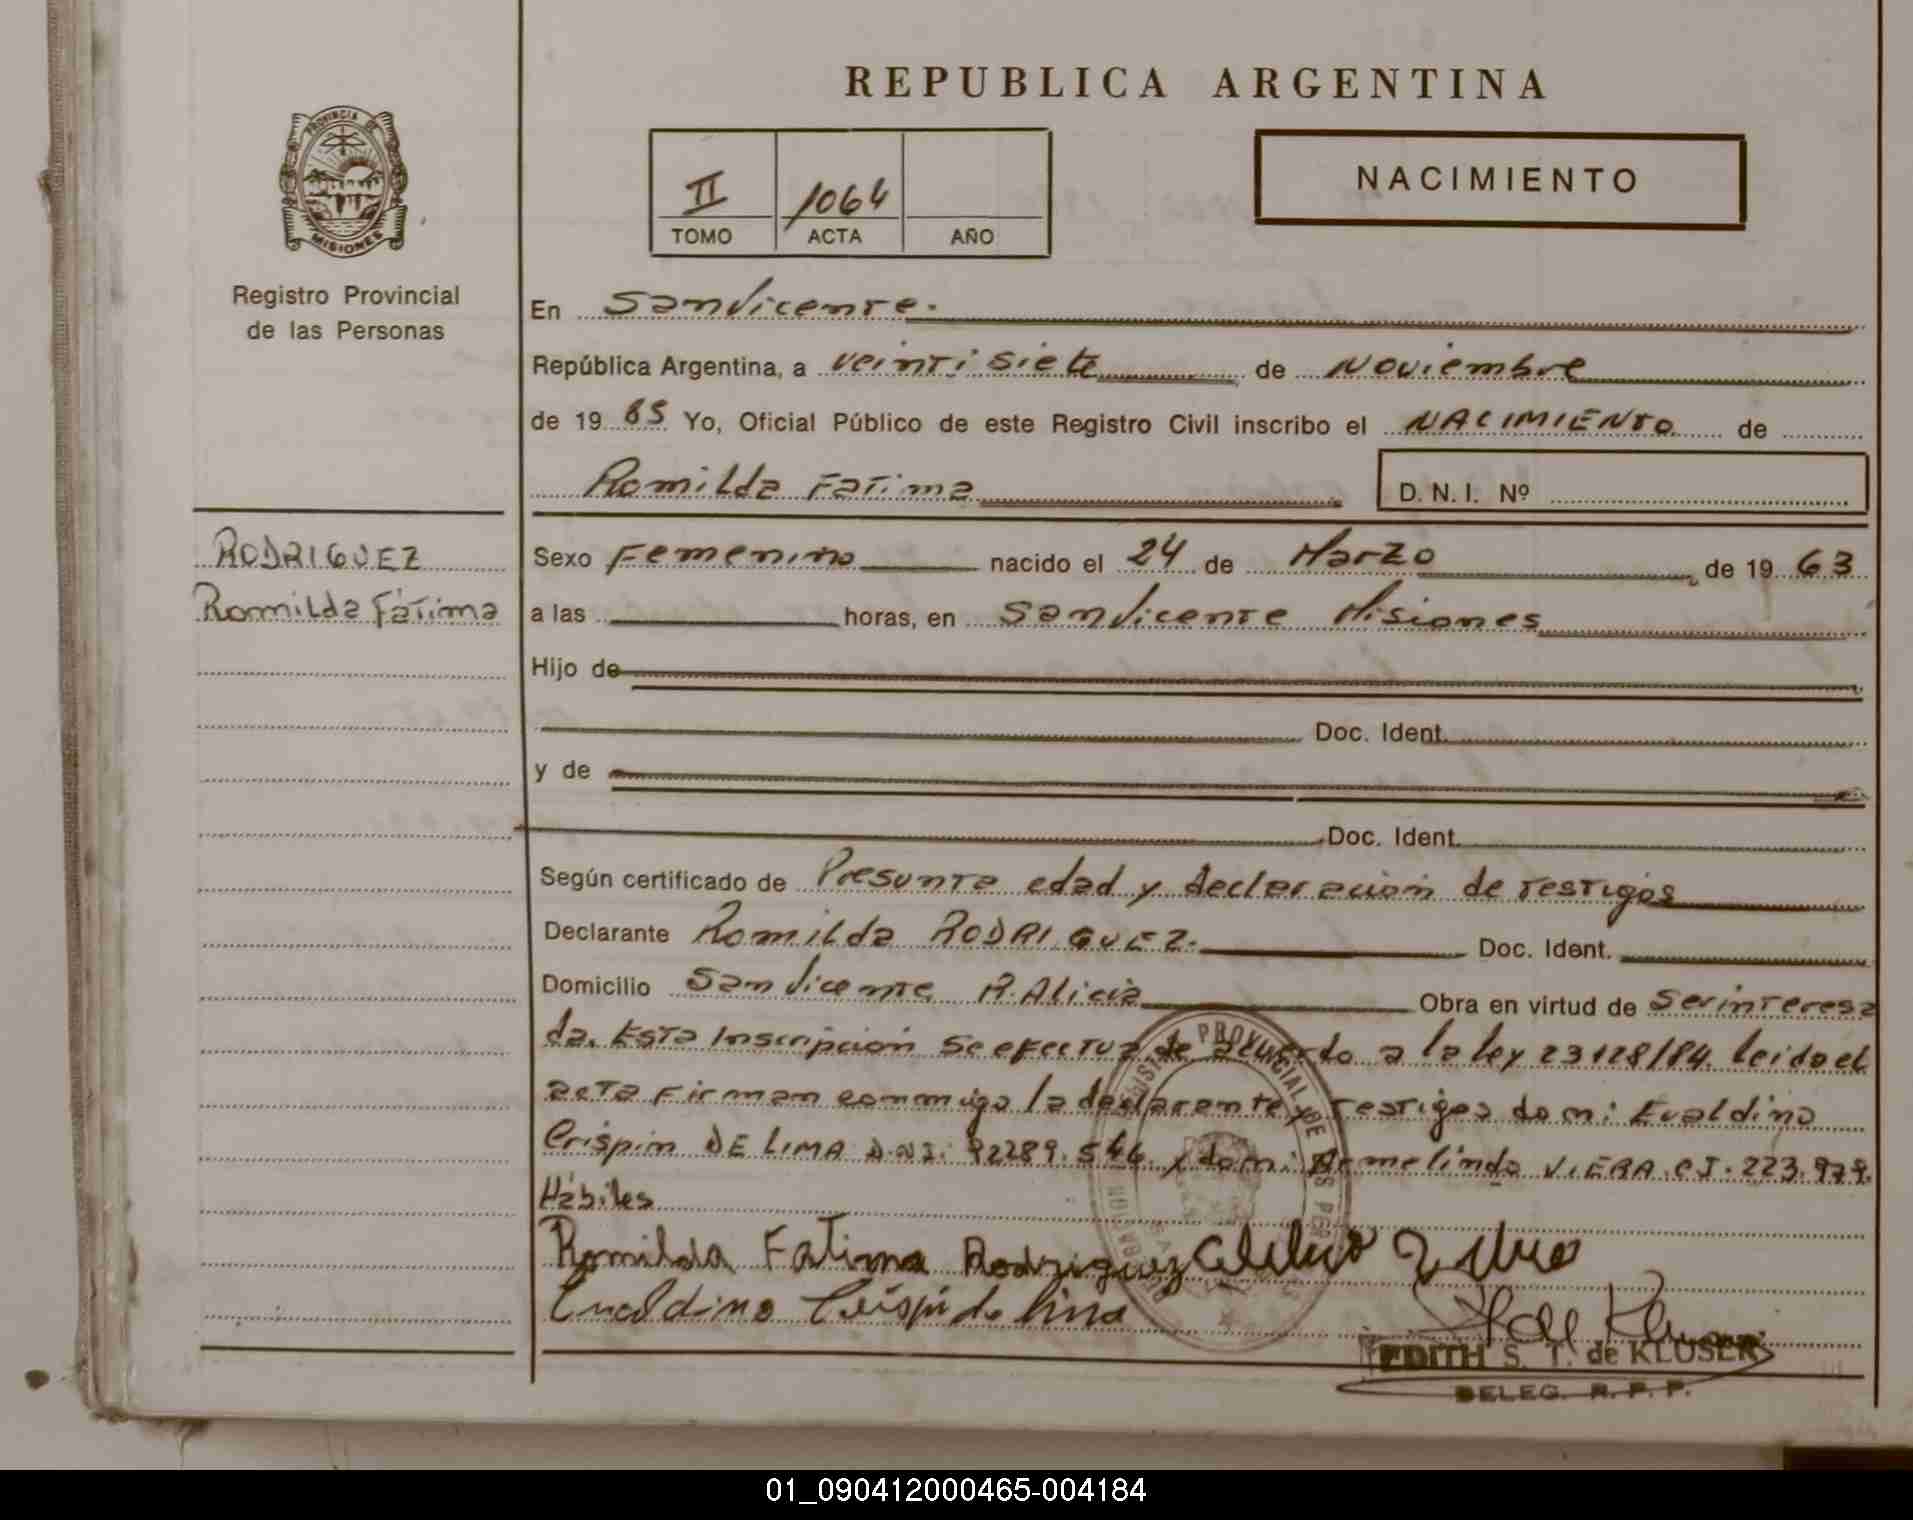 REPUBLICA ARGENTINA
PROVINCIA DE
MISIONES
Registro Provincial
de las Personas
II 1064
TOMO ACTA AÑO
NACIMIENTO
En San Vicente.
República Argentina, a veinti siete de Noviembre
de 19 85 Yo, Oficial Público de este Registro Civil inscribo el NACIMIENTO de
Romilda Fatima D. N. I. Nº
RODRIGUEZ
Romilda Fátima
Sexo Femenino nacido el 24 de Marzo de 19 63
a las horas, en San Vicente Misiones
Hijo de
Doc. Ident.
y de
Doc. Ident.
Según certificado de Presunta edad y declaración de testigos
Declarante Romilda RODRIGUEZ. Doc. Ident.
Domicilio San Vicente P. Alicia Obra en virtud de Ser interesa
da. Esta Inscripción se efectua de acuerdo a la ley 23128/84. leido el
acta Firman conmigo la declarante y testigos don: Evaldino
Crispin DE LIMA D.N.I. 92289.546. y don: Armelindo VIERA C.I. 223.979.
Hábiles
Romilda Fatima Rodriguez
Evaldino Crispi de lima
EDITH S. T. de KLUSER
DELEG. R. P. P.
01_090412000465-004184